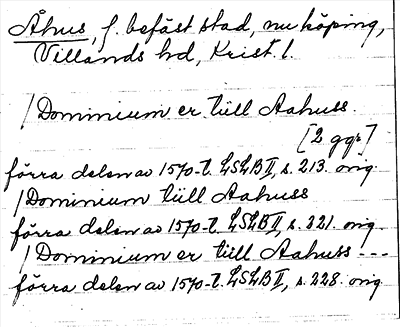 Åhus, f. befäst stad, nu köping,
Villands hd, Krist. l.
/Dominium er. tüll Aahuss.
[2 ggr]
förra delen av 1570-t. LSLB II, s. 213. orig.
/Dominium tüll Aahuss
förra delen av 1570-t. LSLB II, s. 221. orig.
/Dominium er tüll Aahuss ---
förra delen av 1570-t. LSLB II, s. 228. orig.